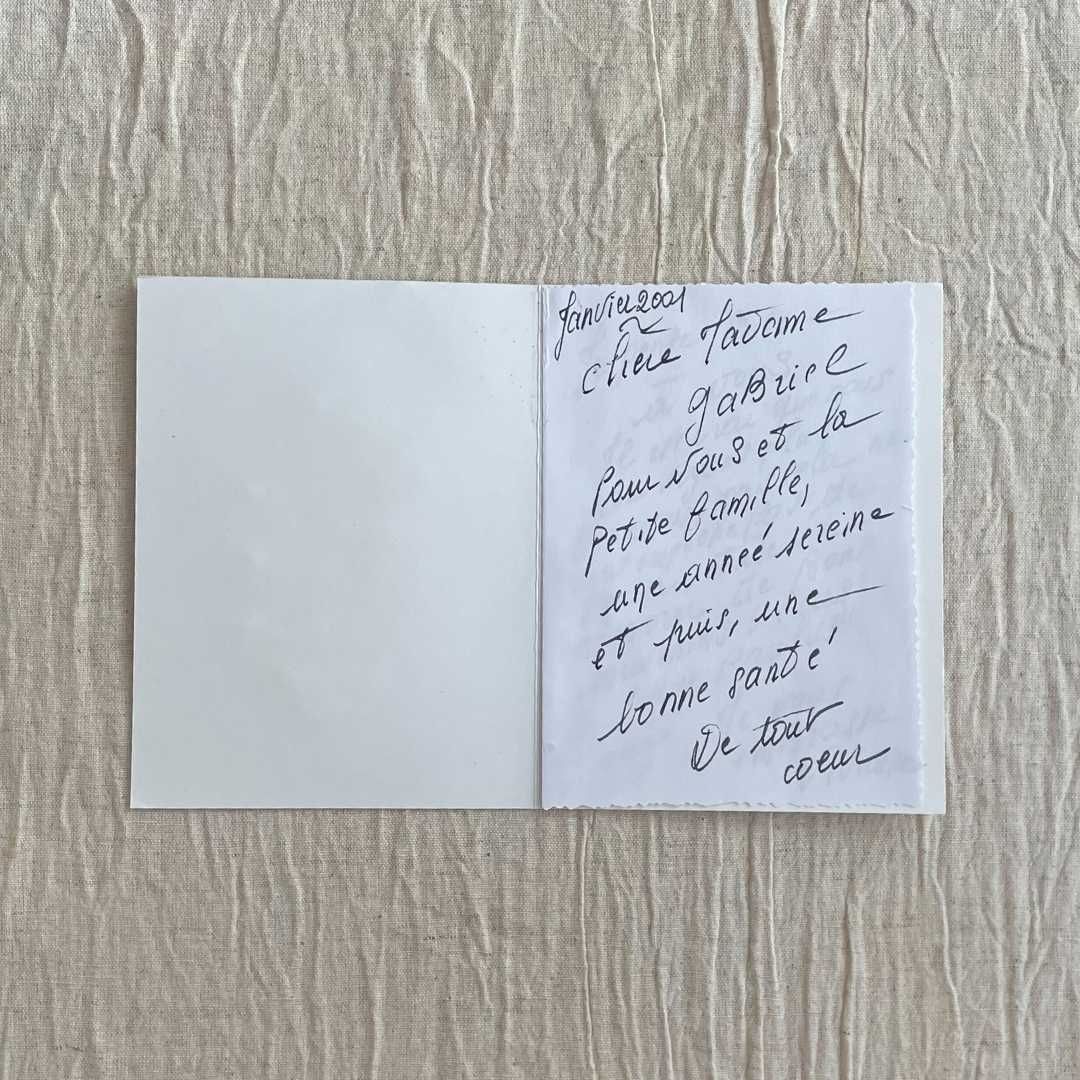 Janvier 2001
Chère Madame
GaBriel
Pour vous et la
Petite famille,
une anneé sereine
et puis, une
bonne santé
De tout
coeur